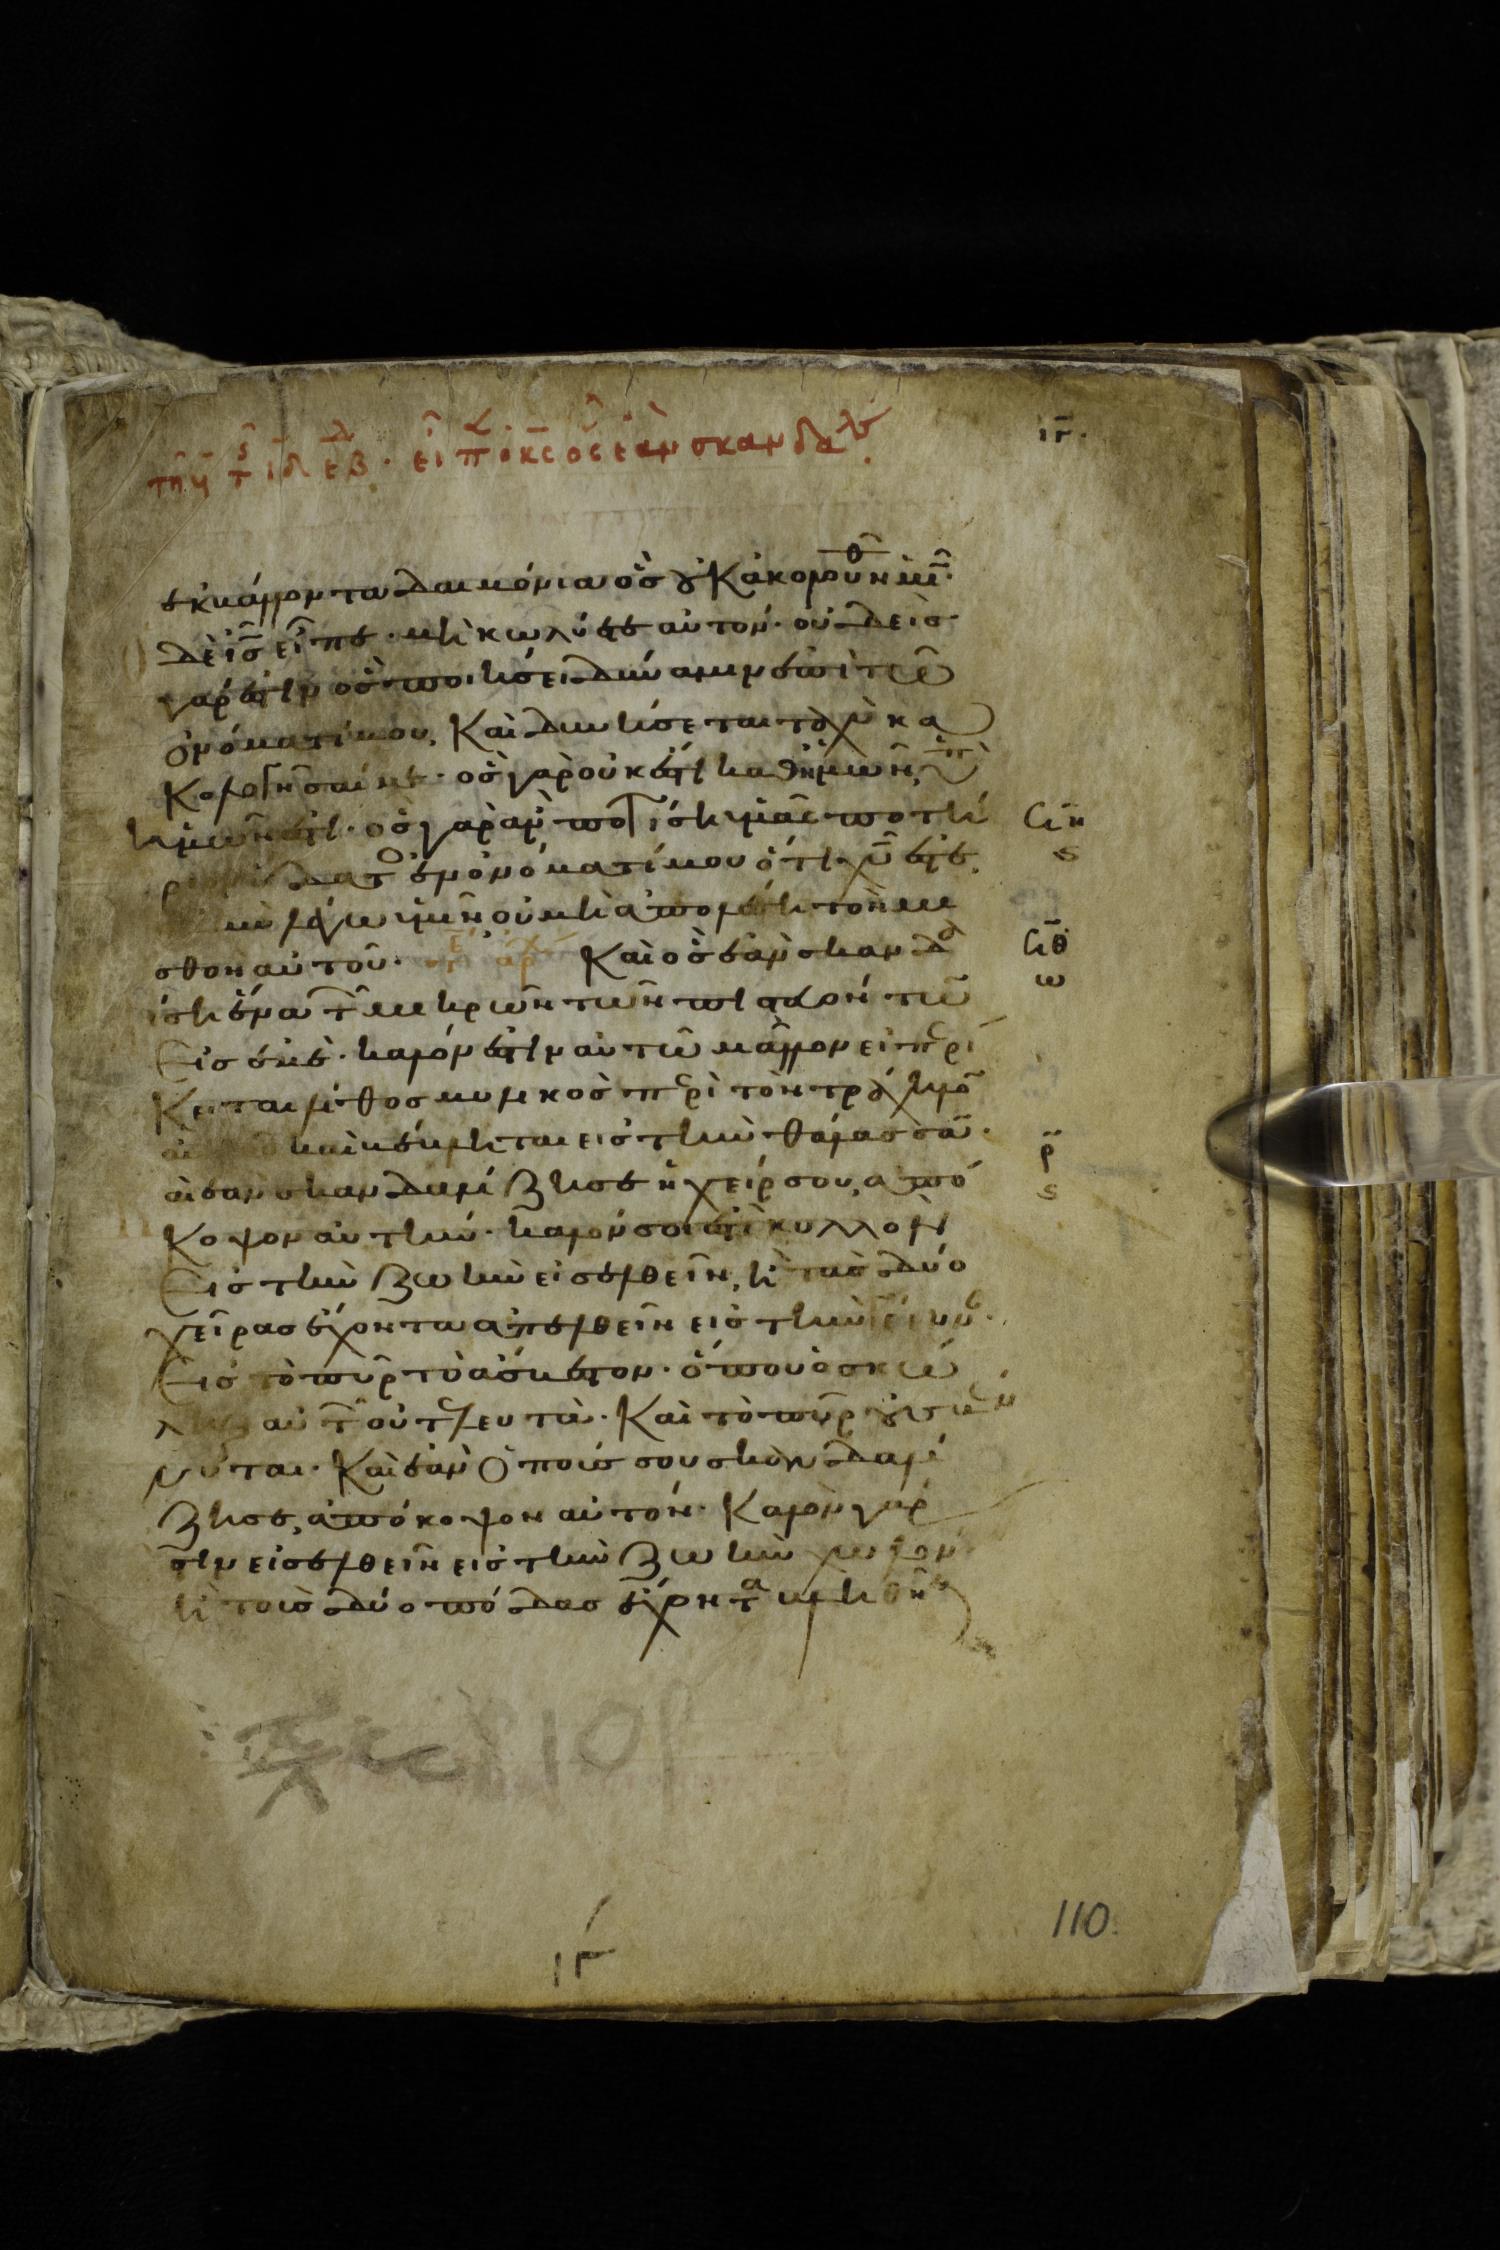 ιγ.
τῆ ϛ τ ιδ εβδ. εἶπ ὁ κς ὃς ἐὰν σκανδαλι.
ἐκβάλλοντα δαιμόνια ὃς οὐκ ἀκολουθ ἡμῖν.
δὲ ἰς εἶπε. μὴ κωλύετε αὐτόν. οὐδεὶς
γάρ ἐστιν ὃς ποιήσει δύναμιν ἐπὶ τῶ
ὀνόματί μου, καὶ δυνήσεται ταχὺ κα
κολογῆσαί με. ὃς γὰρ οὐκ ἔστι καθ' ἡμῶν, ὑπὲρ
ἡμῶν ἐστι. ὃς γὰρ ἂν ποτίση ὑμᾶς ποτή
ριον ὕδατο ἐν ὀνόματί μου ὅτι χυ ἐστε,
ἀμὴν λέγω ὑμῖν οὐ μὴ ἀπολέση τὸν μι
σθὸν αὐτοῦ. τε αρχ Καὶ ὃς ἐὰν σκανδα
ίση ἕνα τ μικρῶν τῶν πιστευόντων
εἰς ἐμὲ. καλόν ἐστιν αὐτῶ μᾶλλον εἰ περί
κειται λίθος μυλικὸς περὶ τὸν τράχηλον
αὐτοῦ καὶ βέβληται εἰς τὴν θάλασσαν.
αἱ ἐὰν σκανδαλίζη σε ἡ χείρ σου, ἀπό
κοψον αὐτήν. καλόν σοι ἐστι κυλλὸν
εἰς τὴν ζωὴν εἰσελθεῖν, ἢ τὰς δύο
χεῖρας ἔχοντα ἀπελθεῖν εἰς τὴν γέενναν.
εἰς τὸ πῦρ τὸ ἄσβεστον. ὅπου ὁ σκώ
ληξ αὐτ οὐ τελευτᾶ. καὶ τὸ πῦρ οὐ σβέν
νυται. καὶ ἐὰν ὁ ποῦς σου σκανδαλί
ζη σε, ἀπόκοψον αὐτόν. καλὸν γάρ
στιν εἰσελθεῖν εἰς τὴν ζωὴν χωλόν
ἢ τοὺς δύο πόδας ἔχοντα βληθῆν
σιη
ϛ
σιθ
ω
ρ
ϛ
ιγ
110